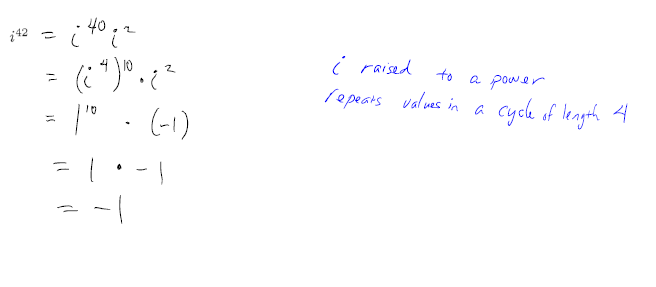 i^42 = i^40 i^2
= (i^4)^10 · i^2
= 1^10 · (-1)
= 1 · -1
= -1
i raised to a power
repeats values in a cycle of length 4